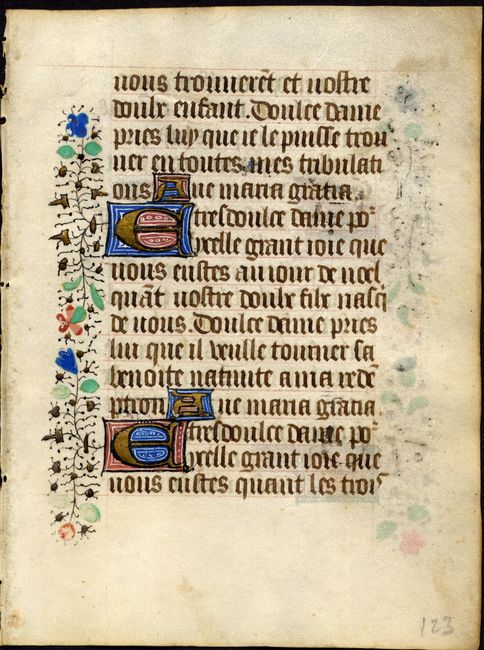 uous trouuerēt et uostre
doulx enfant. Doulce dame
pries luy que ie le puisse trou
uer en toutes mes tribulati
ons Aue maria gratia
E tresdoulce dame por
yxelle grant ioie que
uous eustes au iour de noel
quāt uostre doulx filx nasq
de uous. Doulce dame pries
lui que il veulle tourner sa
benoite natiuite a ma redē
ption Aue maria gratia
E tresdoulce dame por
yxelle grant ioie que
uous eustes quant les trois
123